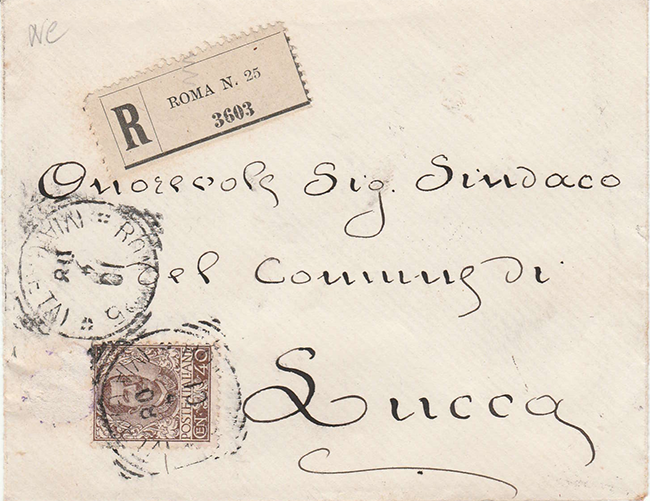 R
ROMA N. 25
3603
Onorevole Sig. Sindaco
del Comune di
Lucca
POSTE ITALIANE
CENT. 40